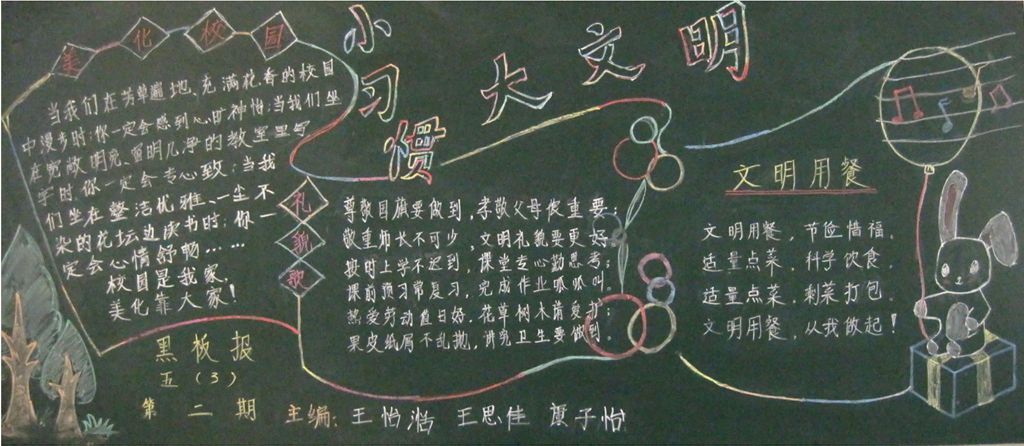 小习惯 大文明
美化校园
当我们在芳草遍地、充满花香的校园
中漫步时,你一定会感到心旷神怡;当我们坐
在宽敞明亮、窗明几净的教室里写
字时,你一定会专心致;当我
们坐在整洁优雅、一尘不
染的花坛边读书时,你一
定会心情舒畅……
校园是我家,
美化靠大家!
黑板报
五(3)
第二期
礼貌歌
尊敬国旗要做到,孝敬父母很重要;
敬重师长不可少,文明礼貌要更好
按时上学不迟到,课堂专心勤思考;
课前预习常复习,完成作业呱呱叫。
热爱劳动值日好,花草树木需爱护;
果皮纸屑不乱抛,讲究卫生要做到。
主编:王怡湉 王思佳 子怡
文明用餐
文明用餐,节俭惜福。
适量点菜,科学饮食。
适量点菜,剩菜打包。
文明用餐,从我做起!